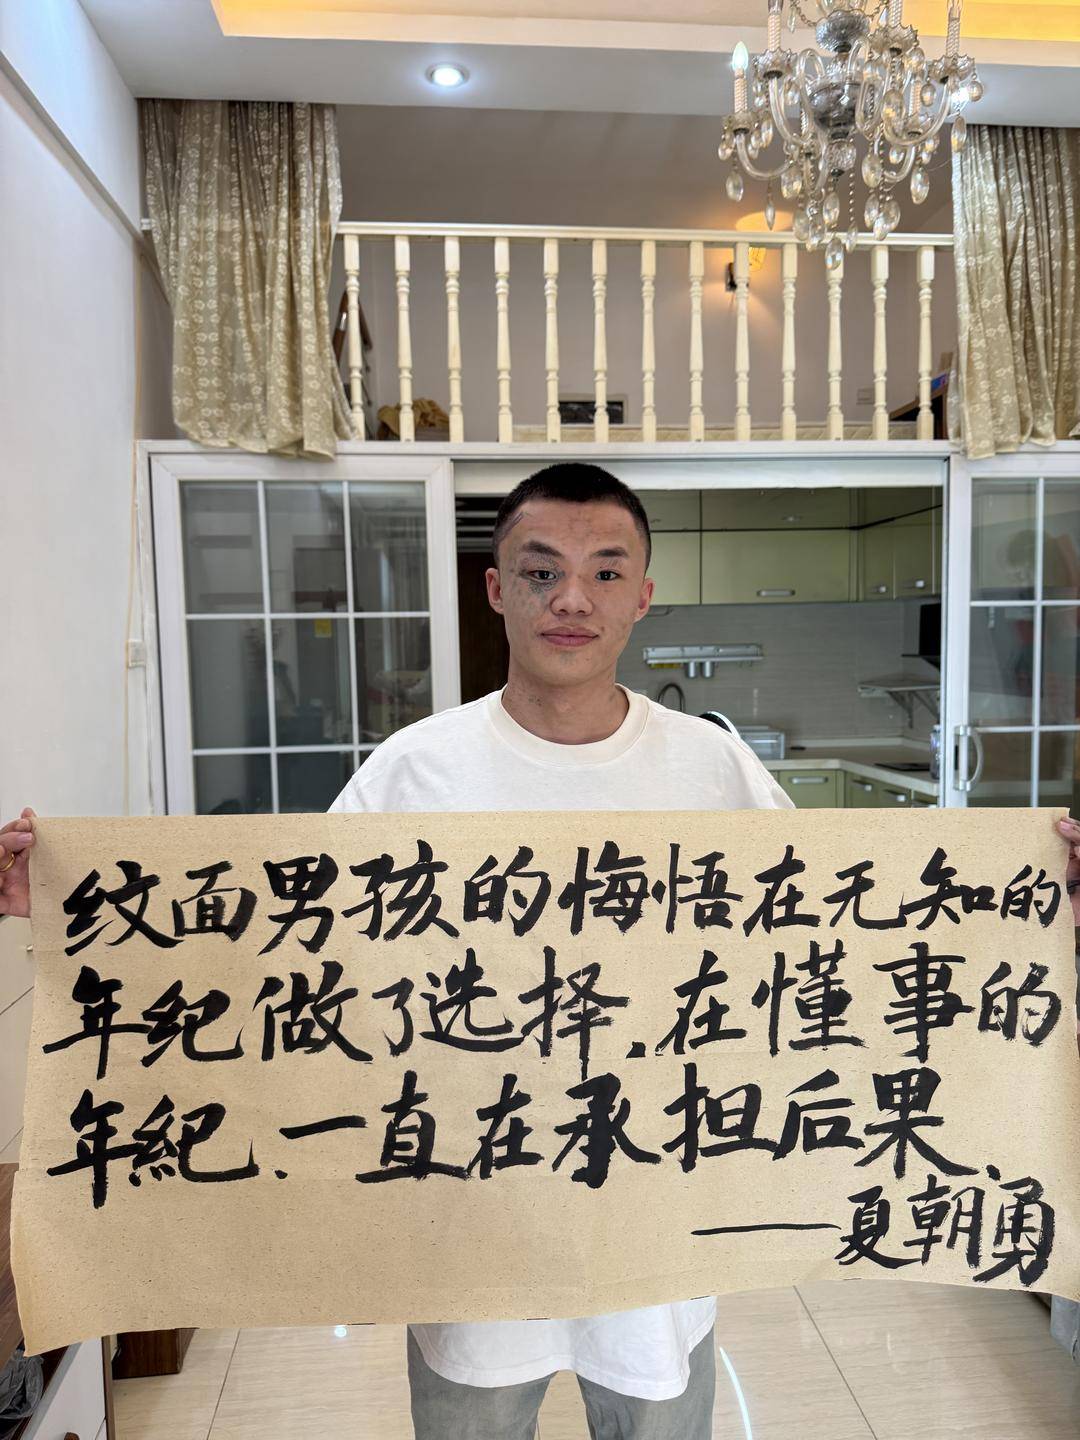 纹面男孩的悔悟在无知的
年纪做了选择.在懂事的
年紀.一直在承担后果.
——夏朝勇